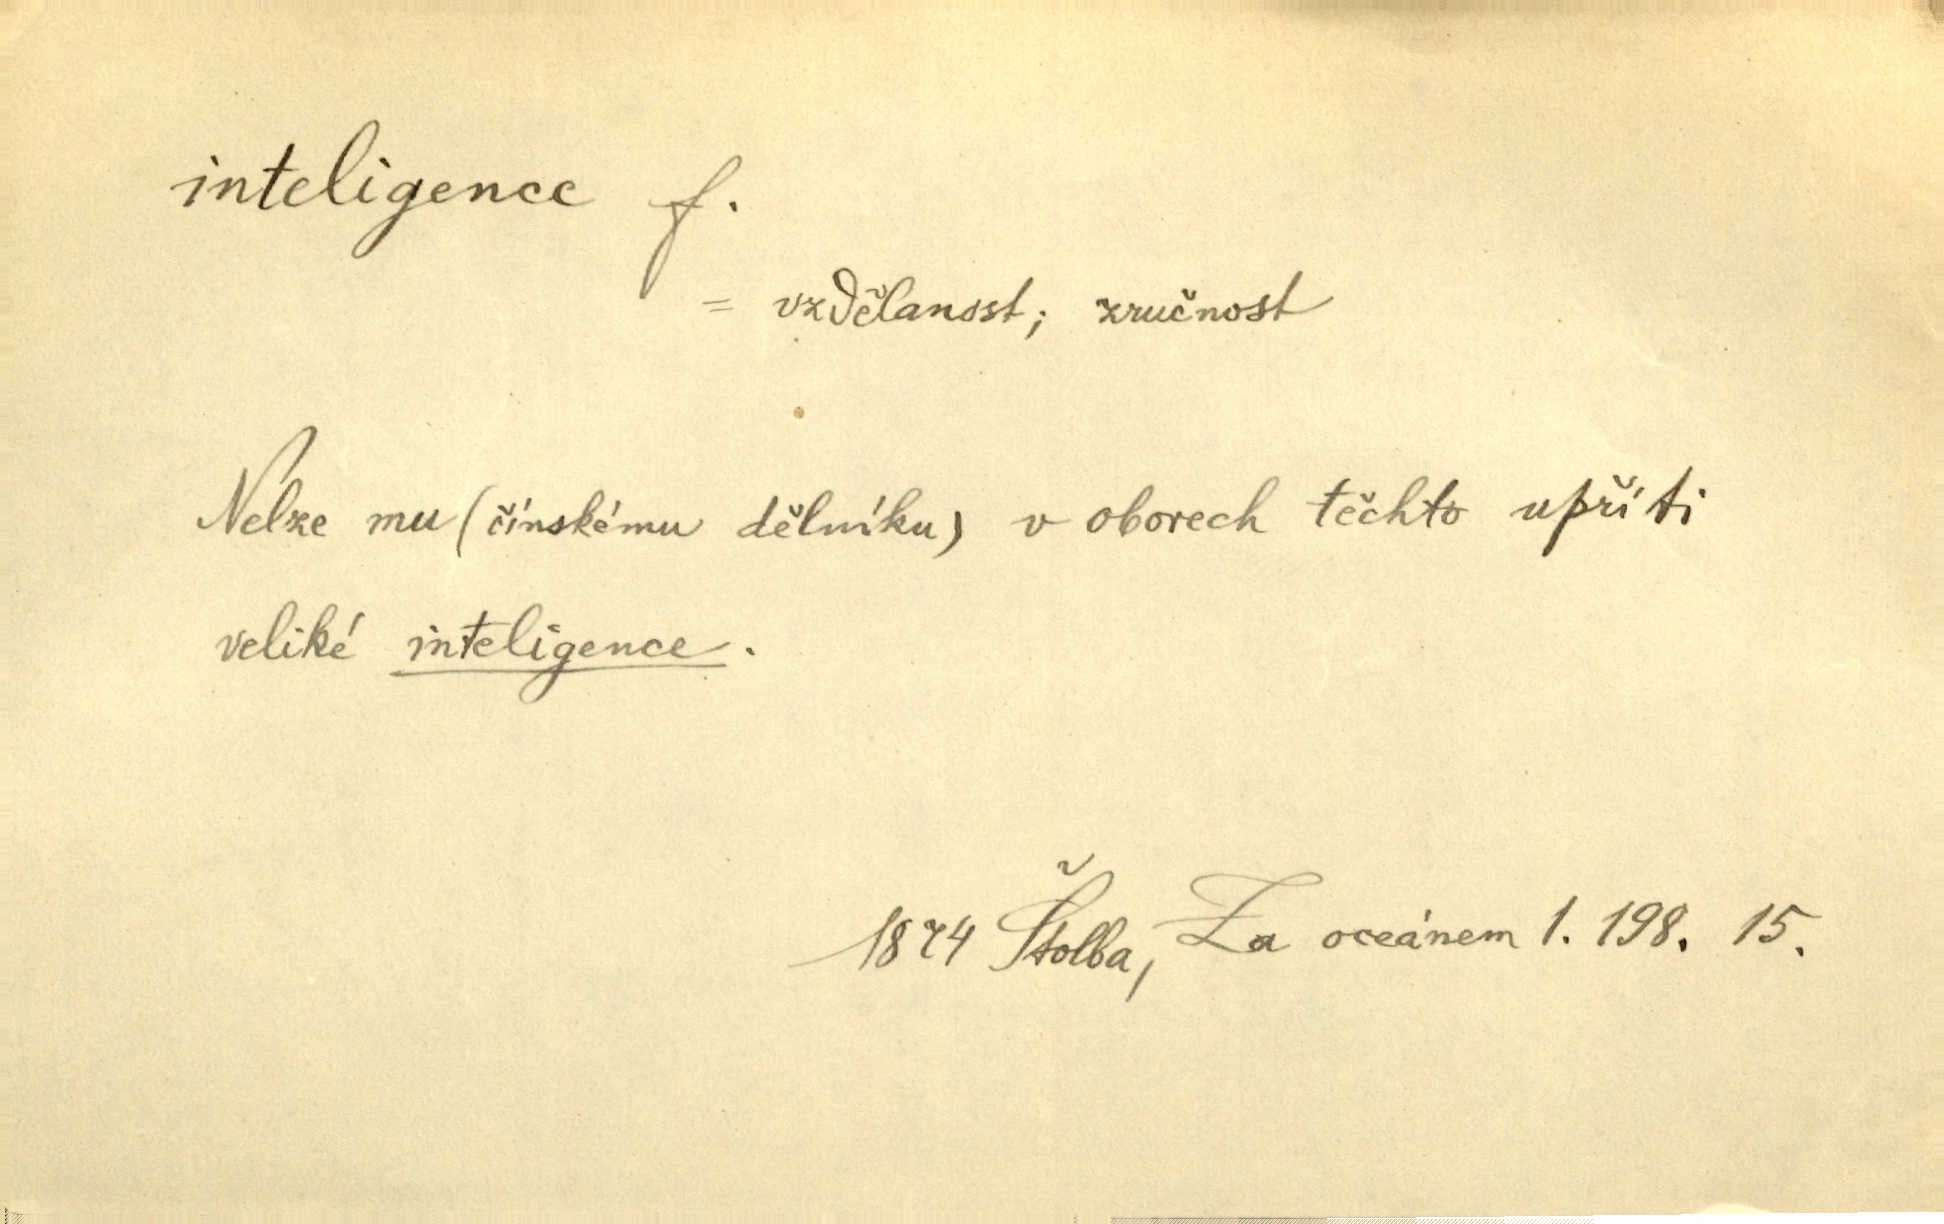 inteligence f.
= vzdělanost; zručnost
Nelze mu (čínskému dělníku) v oborech těchto upříti
veliké inteligence.
1874 Štolba, Za oceánem 1. 198. 15.